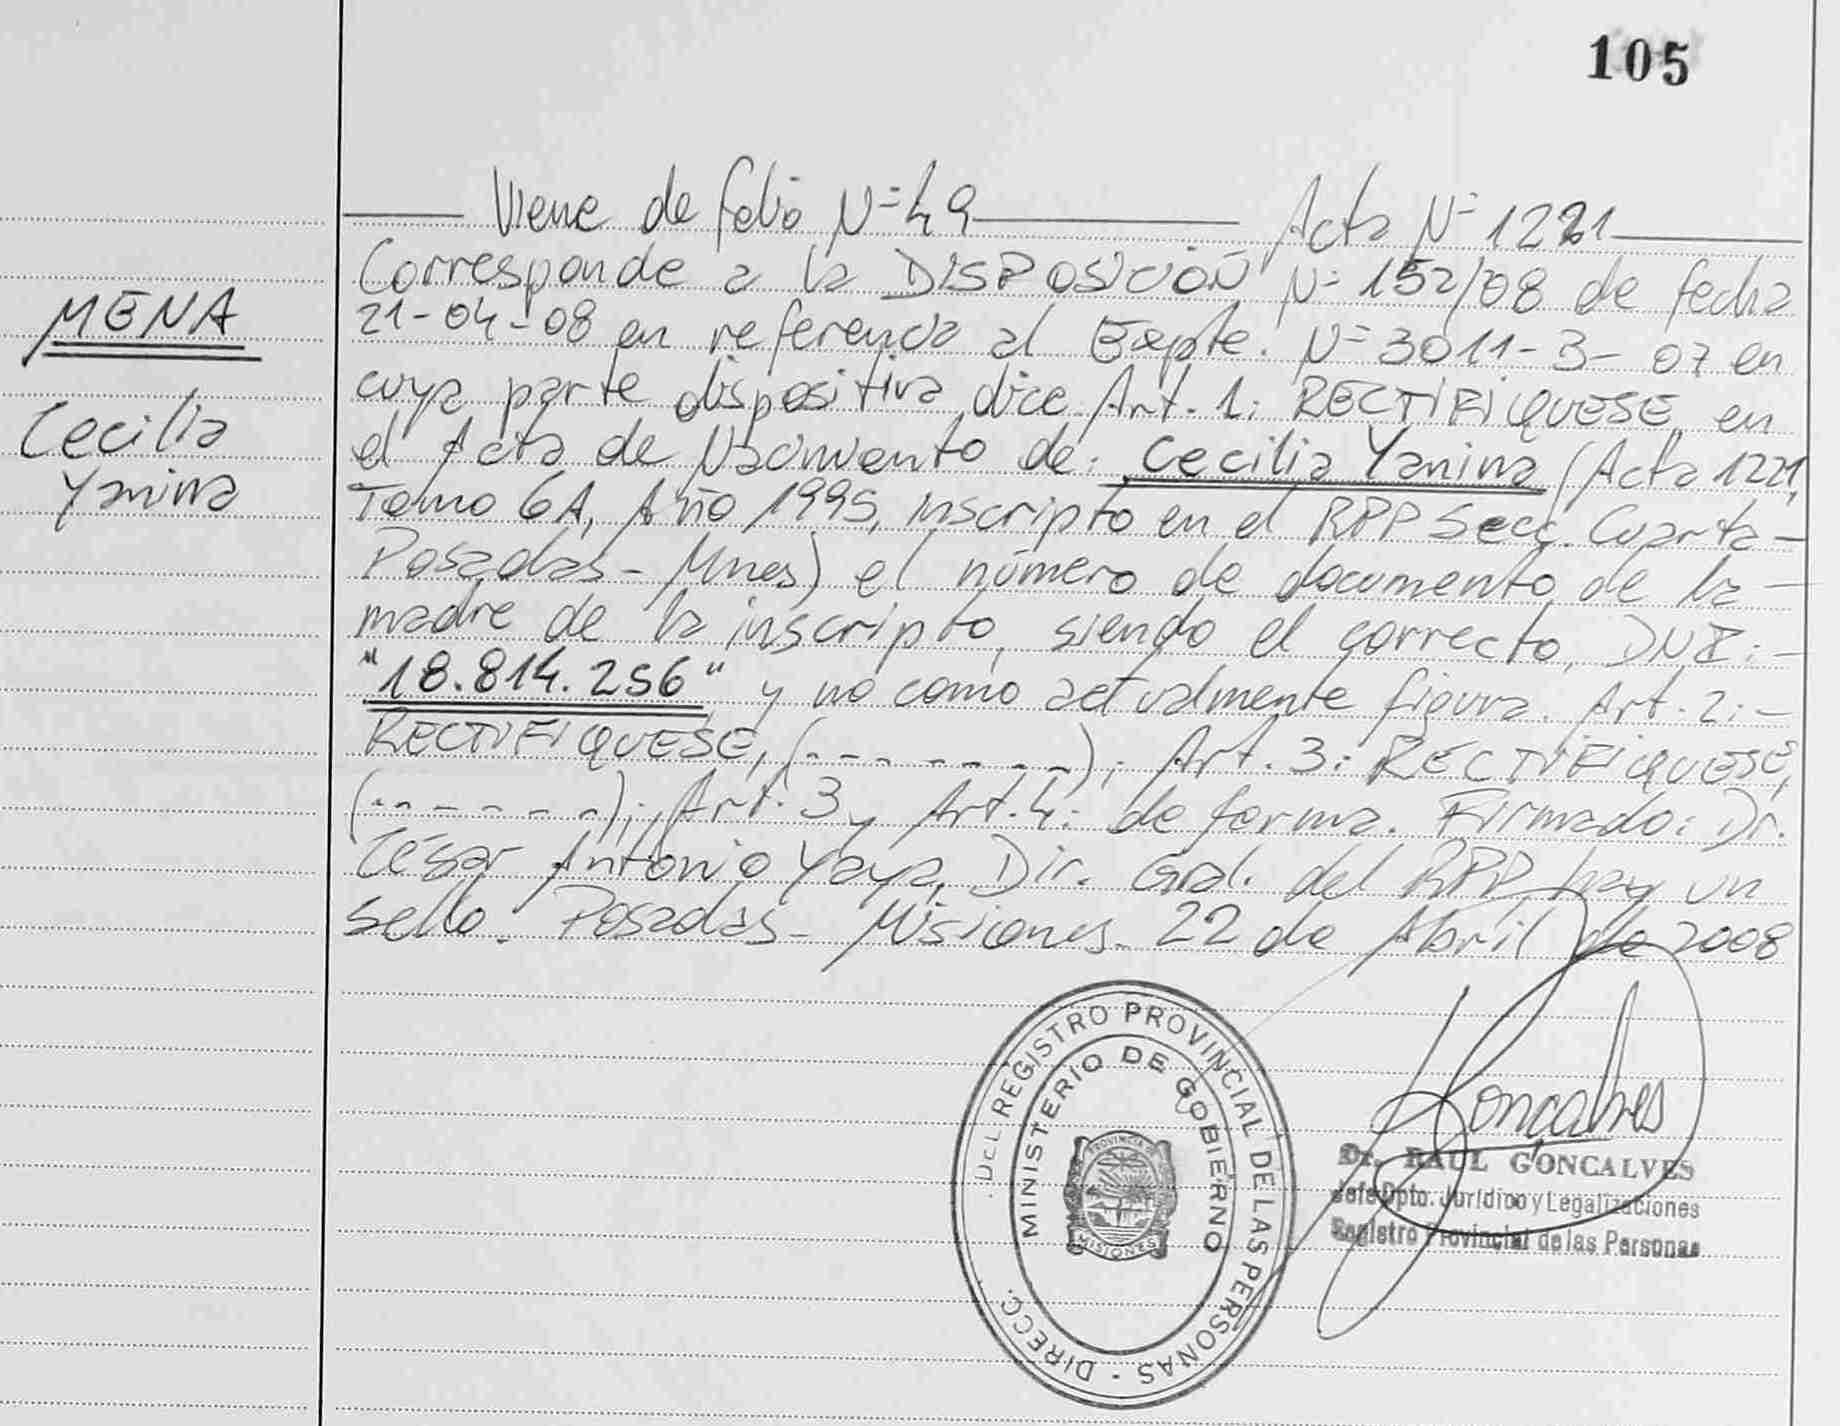 105
Viene de folio Nº 49 Acta Nº 1221
Corresponde a la DISPOSICIÓN Nº 152/08 de fecha
21-04-08 en referencia al Expte. Nº 3011-3-07 en
cuya parte dispositiva dice Art. 1: RECTIFIQUESE, en
el Acta de Nacimiento de: Cecilia Yanina (Acta 1221,
Tomo 6A, Año 1995, inscripto en el RPP Secc. Cuarta-
Posadas- Mnes) el número de documento de la -
madre de la inscripto, siendo el correcto, DNI: -
"18.814.256" y no como actualmente figura. Art. 2: -
RECTIFIQUESE, (- - - - - - -); Art. 3: RECTIFIQUESE,
(- - - - - - -); Art. 3 y Art. 4: de forma. Firmado: Dr.
César Antonio Yaya, Dir. Gral. del RPP, hay un
sello. Posadas- Misiones- 22 de Abril de 2008
MENA
Cecilia
Yanina
DIRECC. DEL REGISTRO PROVINCIAL DE LAS PERSONAS -
MINISTERIO DE GOBIERNO
PROVINCIA DE
MISIONES
Gonçalves
Dr. RAUL GONCALVES
Jefe Dpto. Jurídico y Legalizaciones
Registro Provincial de las Personas